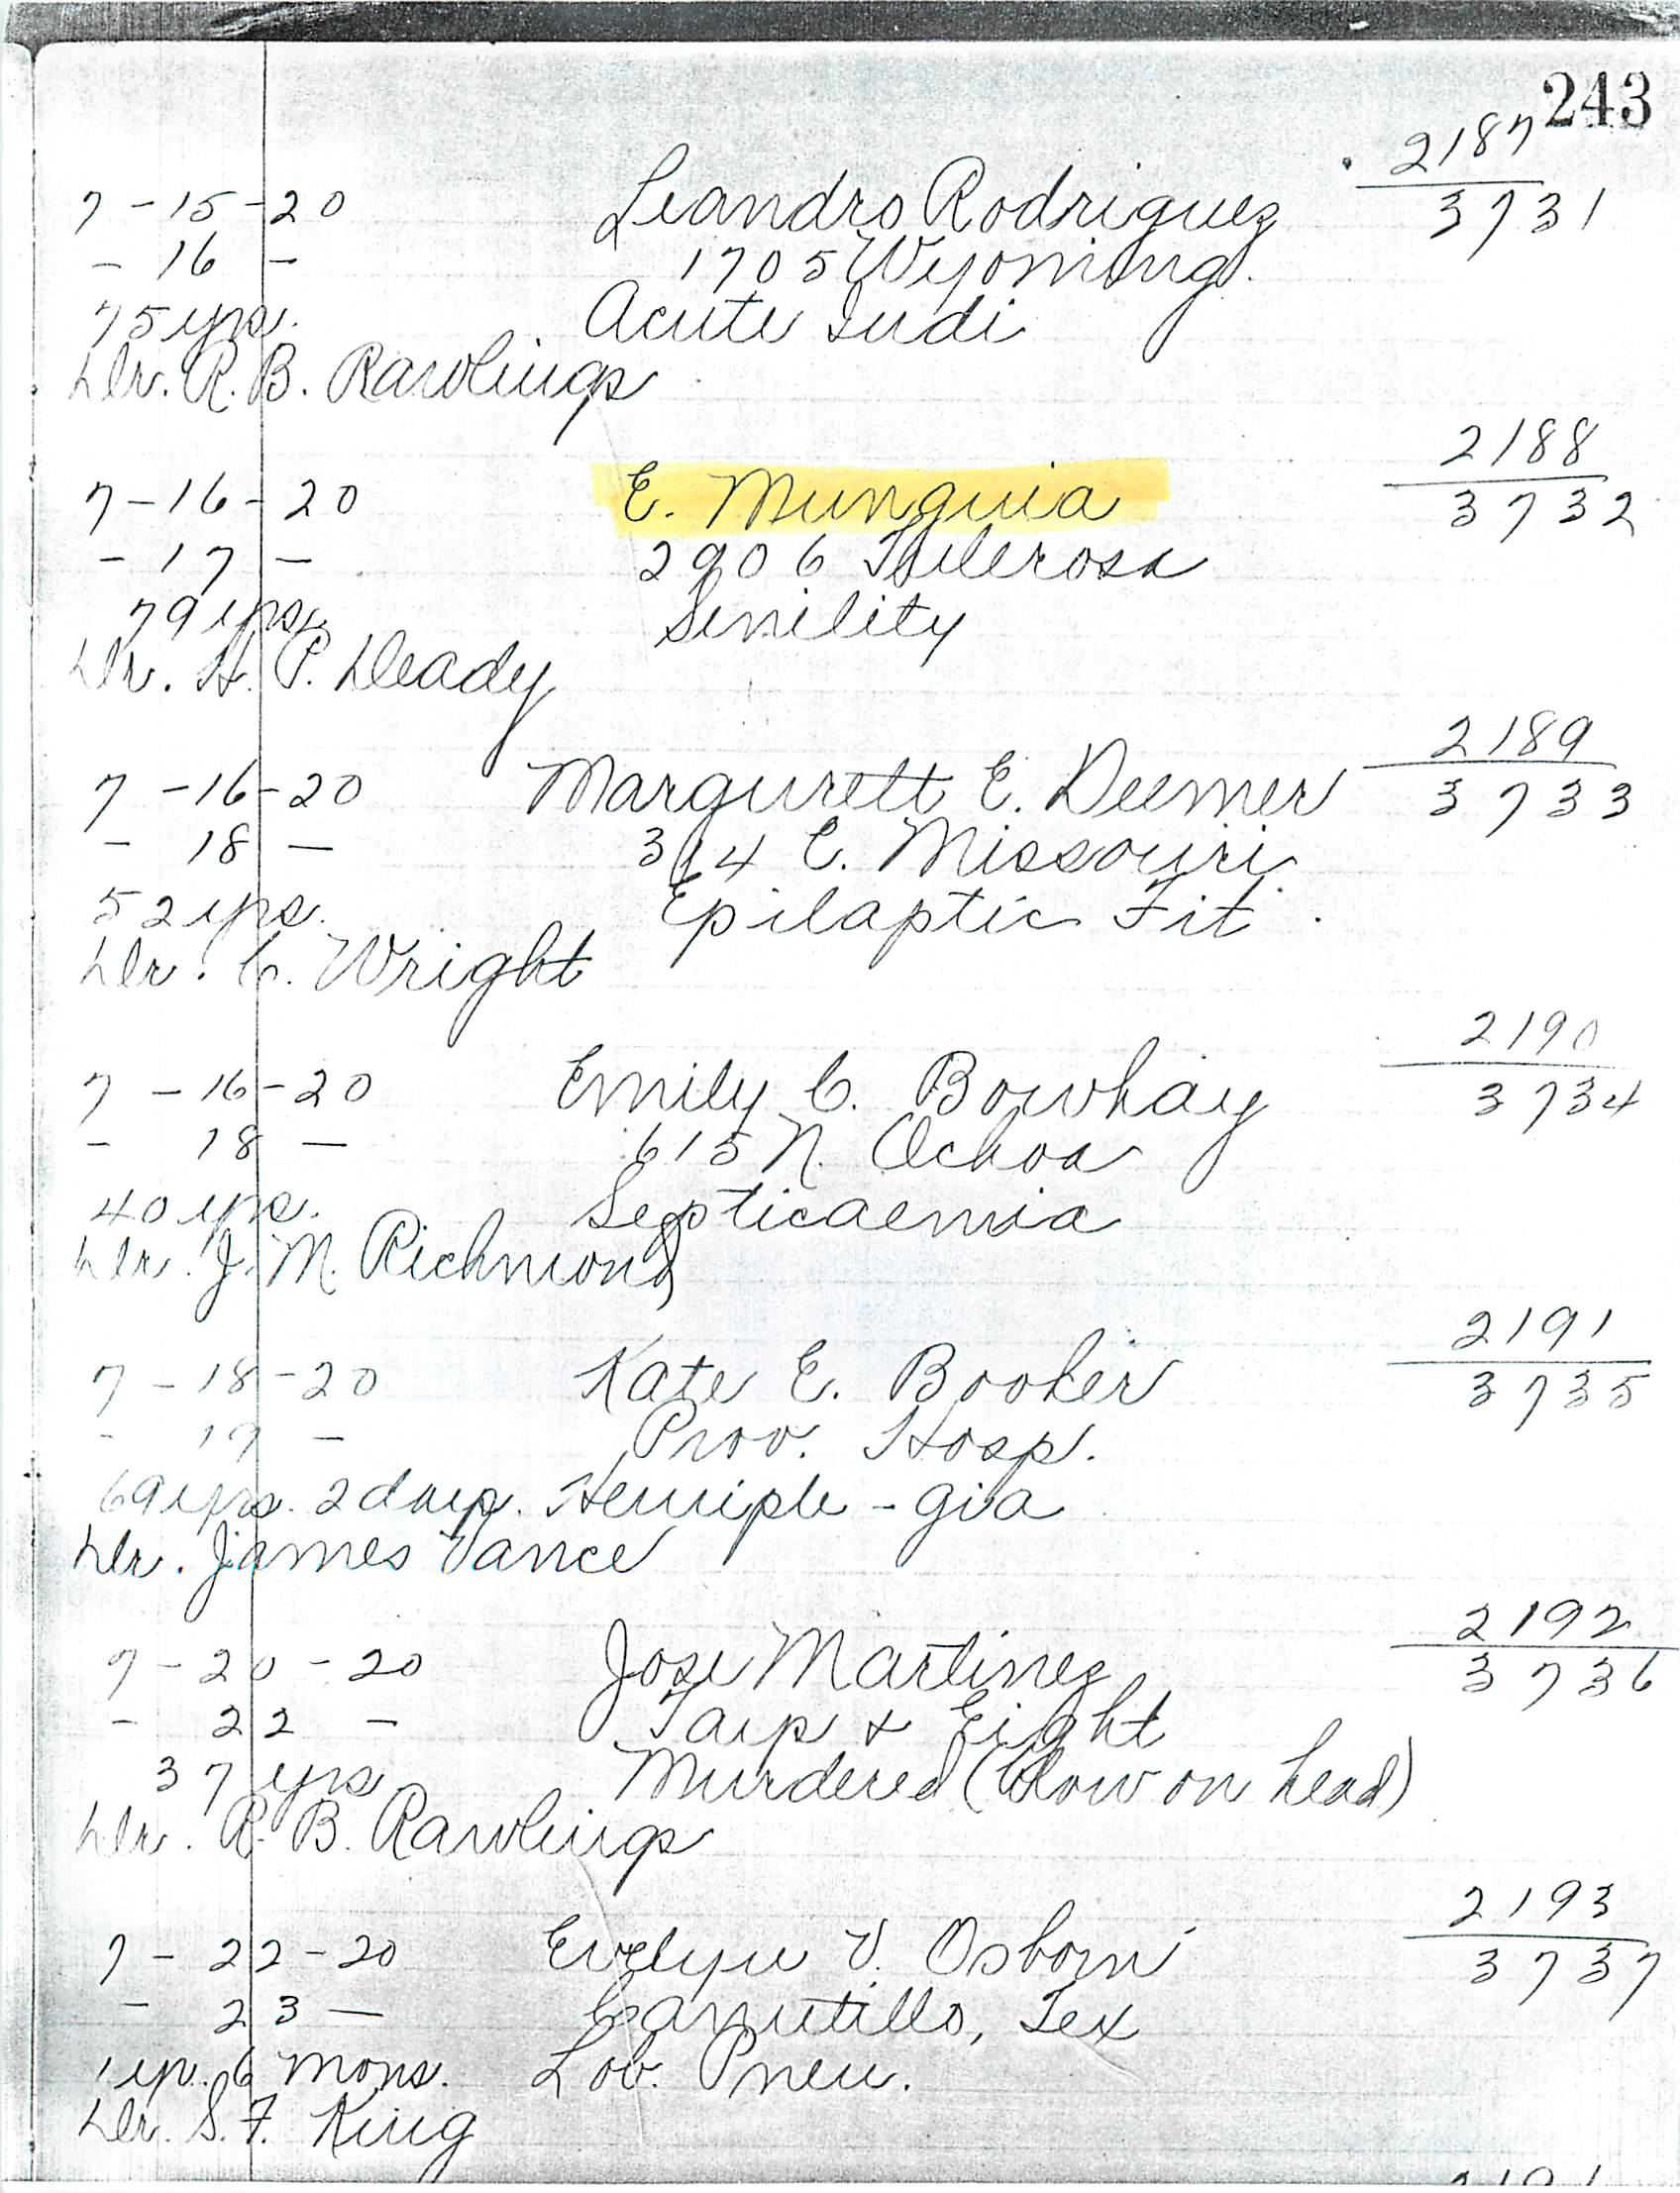 243
2187
7-15-20 Leandro Rodriguez 3731
- 16 - 1705 Wyoming.
75 yrs. Acute Indi
Dr. R. B. Rawlings
2188
7-16-20 E. Munguia 3732
- 17 - 2906 Tulerosa
79 yrs. Senility
Dr. H. P. Deady
2189
7-16-20 Margurett E. Deemer 3733
- 18 - 314 E. Missouri
52 yrs. Epilaptic Fit.
Dr. C. Wright
2190
7-16-20 Emily C. Bowhay 3734
- 18 - 615 N. Ochoa
40 yrs. Septicaemia
Dr. J. M. Richmond
2191
7-18-20 Kate E. Booker 3735
- 19 - Prov. Hosp.
69 yrs. 2 days. Hemiple-gia
Dr. James Vance
2192
7-20-20 Jose Martinez 3736
- 22 - Tays & Eight
37 yrs Murdered (blow on head)
Dr. R. B. Rawlings
2193
7-22-20 Evelyn V. Osborn 3737
- 23 - Canutillo, Tex
1 yr. 6 mons. Lob. Pneu.
Dr. S. F. King